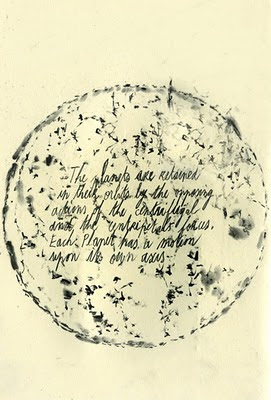 The planets are retained
in their orbits by the opposing
actions of the Centrifugal
and the centripetal forces.
Each Planet has a motion
upon its own axis